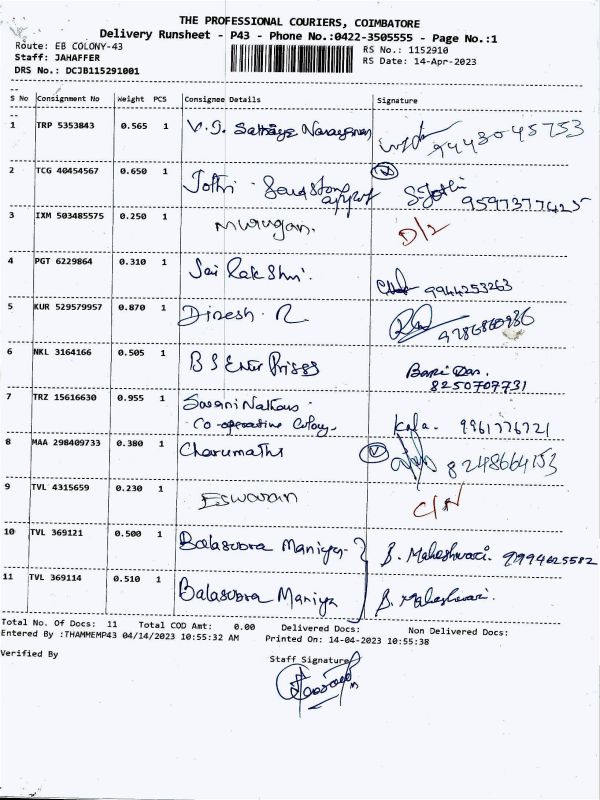 THE PROFESSIONAL COURIERS, COIMBATORE
Delivery Runsheet - P43 - Phone No.:0422-3505555 - Page No.:1
Route: EB COLONY-43 RS No.: 1152910
Staff: JAHAFFER RS Date: 14-Apr-2023
DRS No.: DCJB115291001
S No Consignment No Weight PCS Consignee Details Signature
1 TRP 5353843 0.565 1 V.J. Narayanan 9443045753
2 TCG 40454567 0.650 1 Jothi S. Jothi 9597377425
3 IXM 503485575 0.250 1 Murugan. D/2
4 PGT 6229864 0.310 1 Sai Rakshmi. 9944253263
5 KUR 529579957 0.870 1 Dinesh. R
6 NKL 3164166 0.505 1 B S Enter Prises
8250707731
7 TRZ 15616630 0.955 1
Co-operative Colony. Kala. 9961776721
8 MAA 298409733 0.380 1 Charumathi 8248664153
9 TVL 4315659 0.230 1 Eswaran C/N
10 TVL 369121 0.500 1 Balasubra Maniya B. Maheshwari.
11 TVL 369114 0.510 1 Balasubra Maniya B. Maheshwari.
Total No. Of Docs: 11 Total COD Amt: 0.00 Delivered Docs: Non Delivered Docs:
Entered By :THAMMEMP43 04/14/2023 10:55:32 AM Printed On: 14-04-2023 10:55:38
Verified By Staff Signature